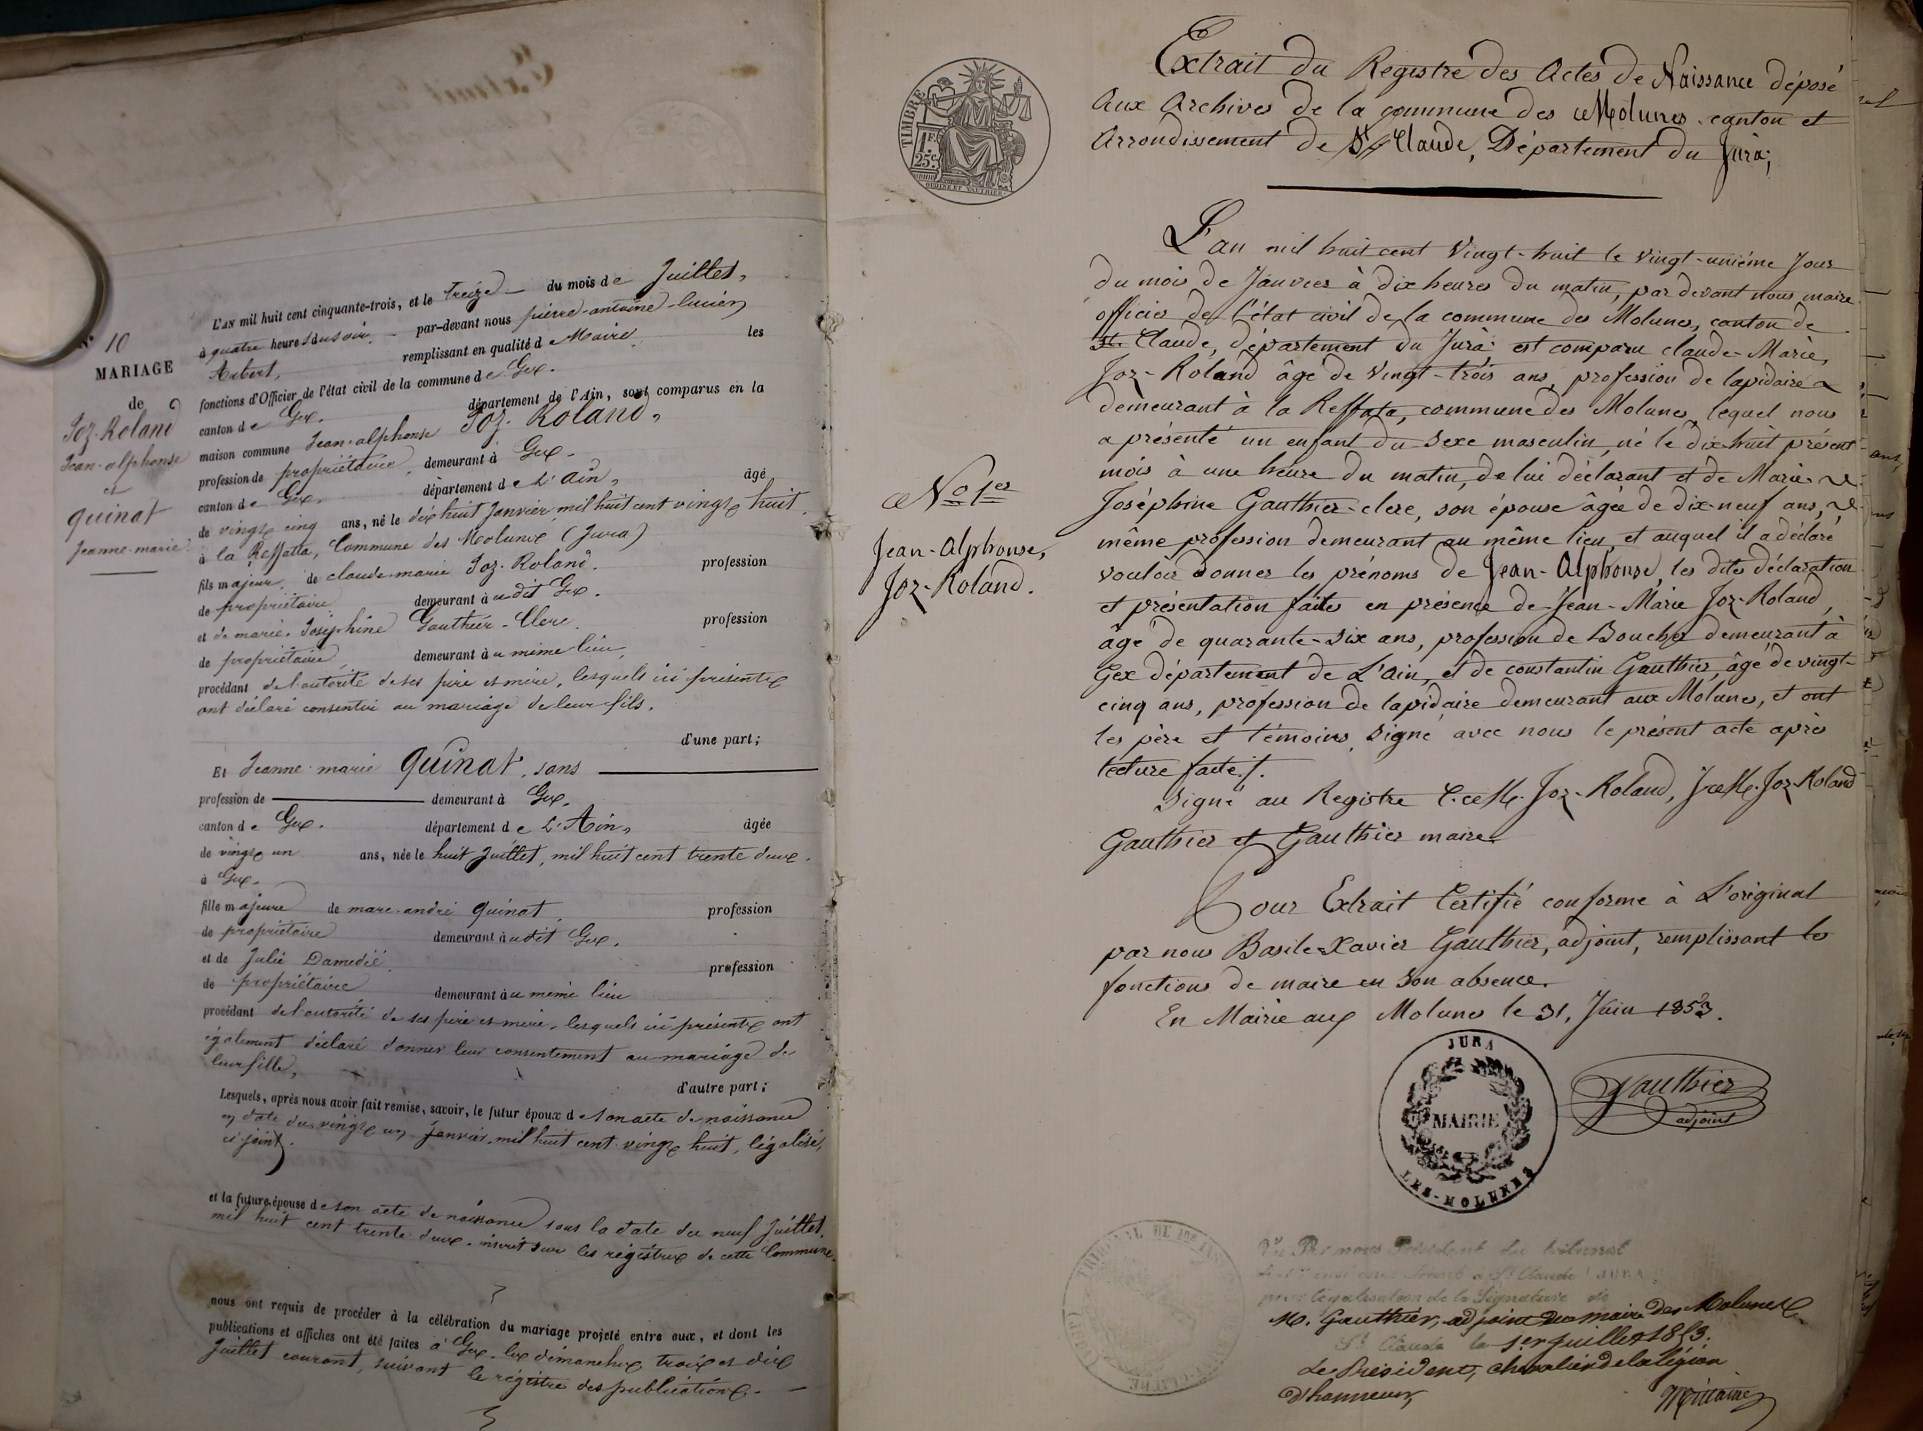 N° 10
MARIAGE
de
Joz-Roland
Jean-alphonse
et
Quinat
Jeanne-marie
L'AN mil huit cent cinquante-trois, et le treize du mois de Juillet,
à quatre heures du soir, par-devant nous pierre-antoine-lucien
remplissant en qualité de Maire les
fonctions d'Officier de l'état civil de la commune de Gex.
canton de Gex. département de l'Ain, sont comparus en la
maison commune Jean-alphonse Joz-Roland,
profession de propriétaire, demeurant à Gex.
canton de Gex, département de L'Ain, âgé
de vingt cinq ans, né le dix huit Janvier mil huit cent vingt huit.
à la Reffatta, Commune des Molunes (Jura)
fils majeur de claude-marie Joz-Roland. profession
de propriétaire demeurant à udit Gex.
et de marie-Joséphine Gauthier-Clerc. profession
de propriétaire, demeurant à u même lieu,
procédant de l'autorité de ses père et mère, lesquels ici présents
ont déclaré consentir au mariage de leur fils.
d'une part;
Et Jeanne-marie Quinat, sans
profession de demeurant à Gex.
canton de Gex. département de L'Ain, âgée
de vingt un ans, née le huit Juillet, mil huit cent trente deux.
à Gex.
fille majeure de marc-andré Quinat, profession
de propriétaire demeurant à udit Gex.
et de Julie profession
de propriétaire demeurant à u même lieu
procédant de l'autorité de ses père et mère, lesquels ici présents ont
également déclaré donner leur consentement au mariage de
leur fille,
d'autre part;
Lesquels, après nous avoir fait remise, savoir, le futur époux de son acte de naissance
en date du vingt un Janvier, mil huit cent vingt huit, légalisé,
ci joint.
et la future épouse de son acte de naissance sous la date du neuf Juillet,
mil huit cent trente deux, inscrit sur les registres de cette Commune
nous ont requis de procéder à la célébration du mariage projeté entre eux, et dont les
publications et affiches ont été faites à Gex, les dimanches trois et dix
Juillet courant, suivant le registre des publications.
TIMBRE
1F.
25c.
Extrait du Registre des Actes de Naissance déposé
Aux Archives de la commune des Molunes canton et
Arrondissement de St Claude, Département du Jura;
N° 1er
Jean-Alphonse,
Joz-Roland.
L'an mil huit cent Vingt-huit le vingt-unième Jour
du mois de Janvier à dix heures du matin, par devant nous maire
officier de l'état civil de la commune des Molunes, canton de
St. Claude, département du Jura; est comparu claude-Marie,
Joz-Roland âge de Vingt-trois ans, profession de lapidaire
demeurant à la Reffata, commune des Molunes, lequel nous
a présenté un enfant du sexe masculin, né le dix-huit présent
mois à une heure du matin, de lui déclarant et de Marie
Joséphine Gauthier-clerc, son épouse âgée de dix-neuf ans,
même profession demeurant au même lieu, et auquel il a déclaré
vouloir donner les prénoms de Jean-Alphonse, les dites déclaration
et présentation faites en présence de Jean-Marie Joz-Roland,
âge de quarante-six ans, profession de Boucher demeurant à
Gex département de L'ain, et de constantin Gauthier, âgé de vingt-
cinq ans, profession de lapidaire demeurant aux Molunes, et ont
les père et témoins, signé avec nous le présent acte après
lecture faite.
Signé au Registre C. M. Joz-Roland, J. M. Joz-Roland
Gauthier et Gauthier maire.
Pour Extrait Certifié conforme à L'original
par nous Basile-Xavier Gauthier, adjoint, remplissant les
fonctions de maire en son absence.
En Mairie aux Molunes le 31, Juin 1853.
JURA
MAIRIE
LES-MOLUNES
Gauthier
adjoint
TRIBUNAL DE 1re
Vu Par nous Président du tribunal
St Claude (JURA)
pour légalisation de la Signature de
M. Gauthier, adjoint au maire des Molunes
St Claude le 1er juillet 1853.
Le Président, chevalier de la légion
d'honneur,